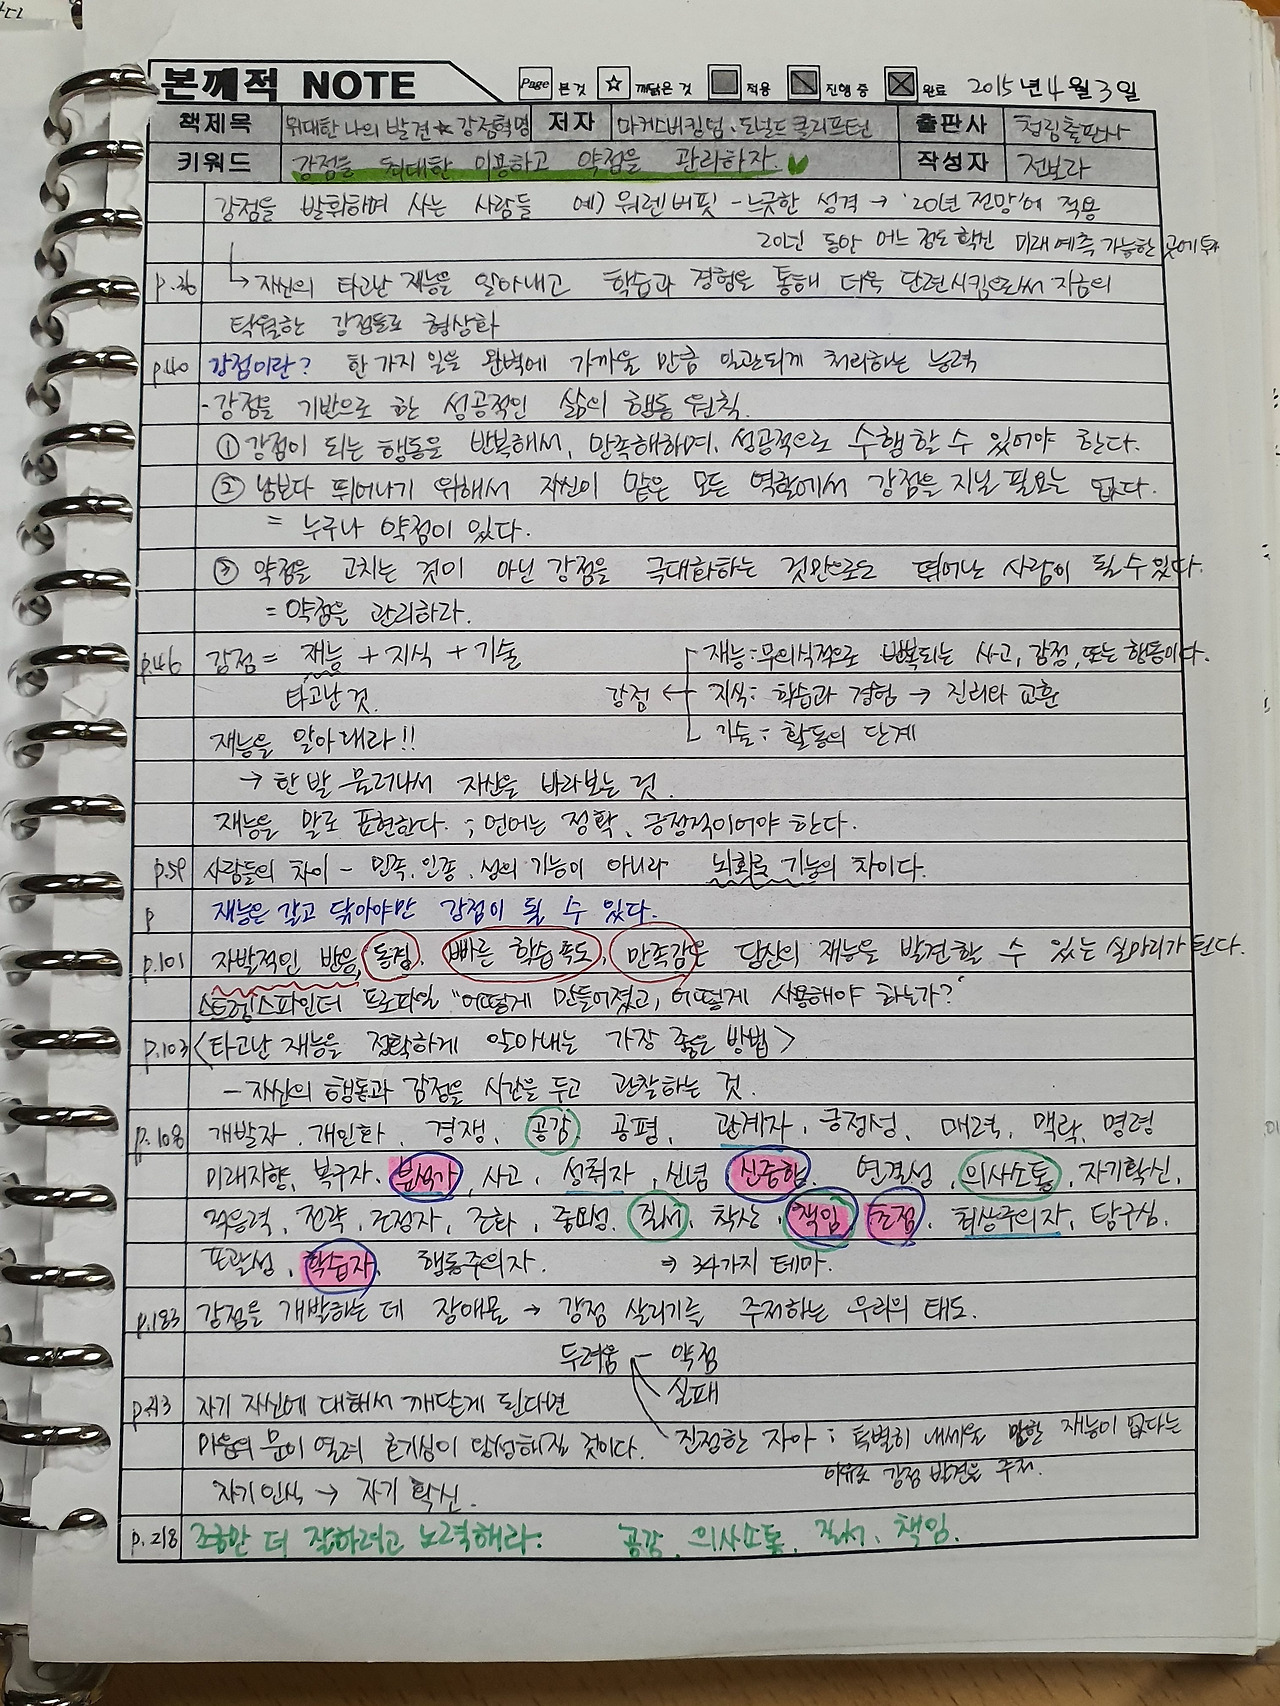 본깨적 NOTE Page 본 것 ☆ 깨달은 것 적용 진행 중 완료 2015년 4월 3일
책제목 위대한 나의 발견 ★ 강점혁명 저자 마커스버킹엄·도널드클리프턴 출판사 청림출판사
키워드 강점을 최대한 이용하고 약점을 관리하자. 작성자 전보라
강점을 발휘하며 사는 사람들 예) 워렌버핏 - 느긋한 성격 → '20년 전망'에 적용
20년 동안 어느 정도 확신 미래 예측 가능한 곳에 투자
p.26 → 자신의 타고난 재능을 알아내고 학습과 경험을 통해 더욱 단련시킴으로써 지금의
탁월한 강점들로 형상화
p.40 강점이란? 한 가지 일을 완벽에 가까울 만큼 일관되게 처리하는 능력
- 강점을 기반으로 한 성공적인 삶의 행동 원칙.
① 강점이 되는 행동을 반복해서, 만족해하며, 성공적으로 수행할 수 있어야 한다.
② 남보다 뛰어나기 위해서 자신이 맡은 모든 역할에서 강점을 지닐 필요는 없다.
= 누구나 약점이 있다.
③ 약점을 고치는 것이 아닌 강점을 극대화하는 것만으로도 뛰어난 사람이 될 수 있다.
= 약점을 관리하라.
p.46 강점 = 재능 + 지식 + 기술 재능: 무의식적으로 반복되는 사고, 감정, 또는 행동이다.
타고난 것. 강점 ← 지식: 학습과 경험 → 진리와 교훈
재능을 알아내라!! 기술: 활동의 단계
→ 한 발 물러나서 자신을 바라보는 것.
재능을 말로 표현한다. ; 언어는 정확, 긍정적이어야 한다.
p.59 사람들의 차이 - 민족, 인종, 성의 기능이 아니라 뇌회로 기능의 차이다.
p 재능은 갈고 닦아야만 강점이 될 수 있다.
p.101 자발적인 반응, 동경, 빠른 학습 속도, 만족감은 당신의 재능을 발견할 수 있는 실마리가 된다.
스트렝스파인더 프로파일 "어떻게 만들어졌고, 어떻게 사용해야 하는가?"
p.103 <타고난 재능을 정확하게 알아내는 가장 좋은 방법>
- 자신의 행동과 감정을 시간을 두고 관찰하는 것.
p.108 개발자, 개인화, 경쟁, 공감, 공평, 관계자, 긍정성, 매력, 맥락, 명령
미래지향, 복구자, 분석가, 사고, 성취자, 신념, 신중함, 연결성, 의사소통, 자기확신,
적응력, 전략, 조정자, 조화, 중요성, 질서, 착상, 책임, 초점, 최상주의자, 탐구심,
포괄성, 학습자, 행동주의자. ⇒ 34가지 테마.
p.183 강점을 개발하는 데 장애물 → 강점 살리기를 주저하는 우리의 태도.
두려움 - 약점
p.213 자기 자신에 대해서 깨닫게 된다면 실패
마음의 문이 열려 호기심이 왕성해질 것이다. 진정한 자아 : 특별히 내세울 만한 재능이 없다는
이유로 강점 발견을 주저.
자기인식 → 자기 확신.
p.218 조금만 더 잘하려고 노력해라: 공감, 의사소통, 질서, 책임.